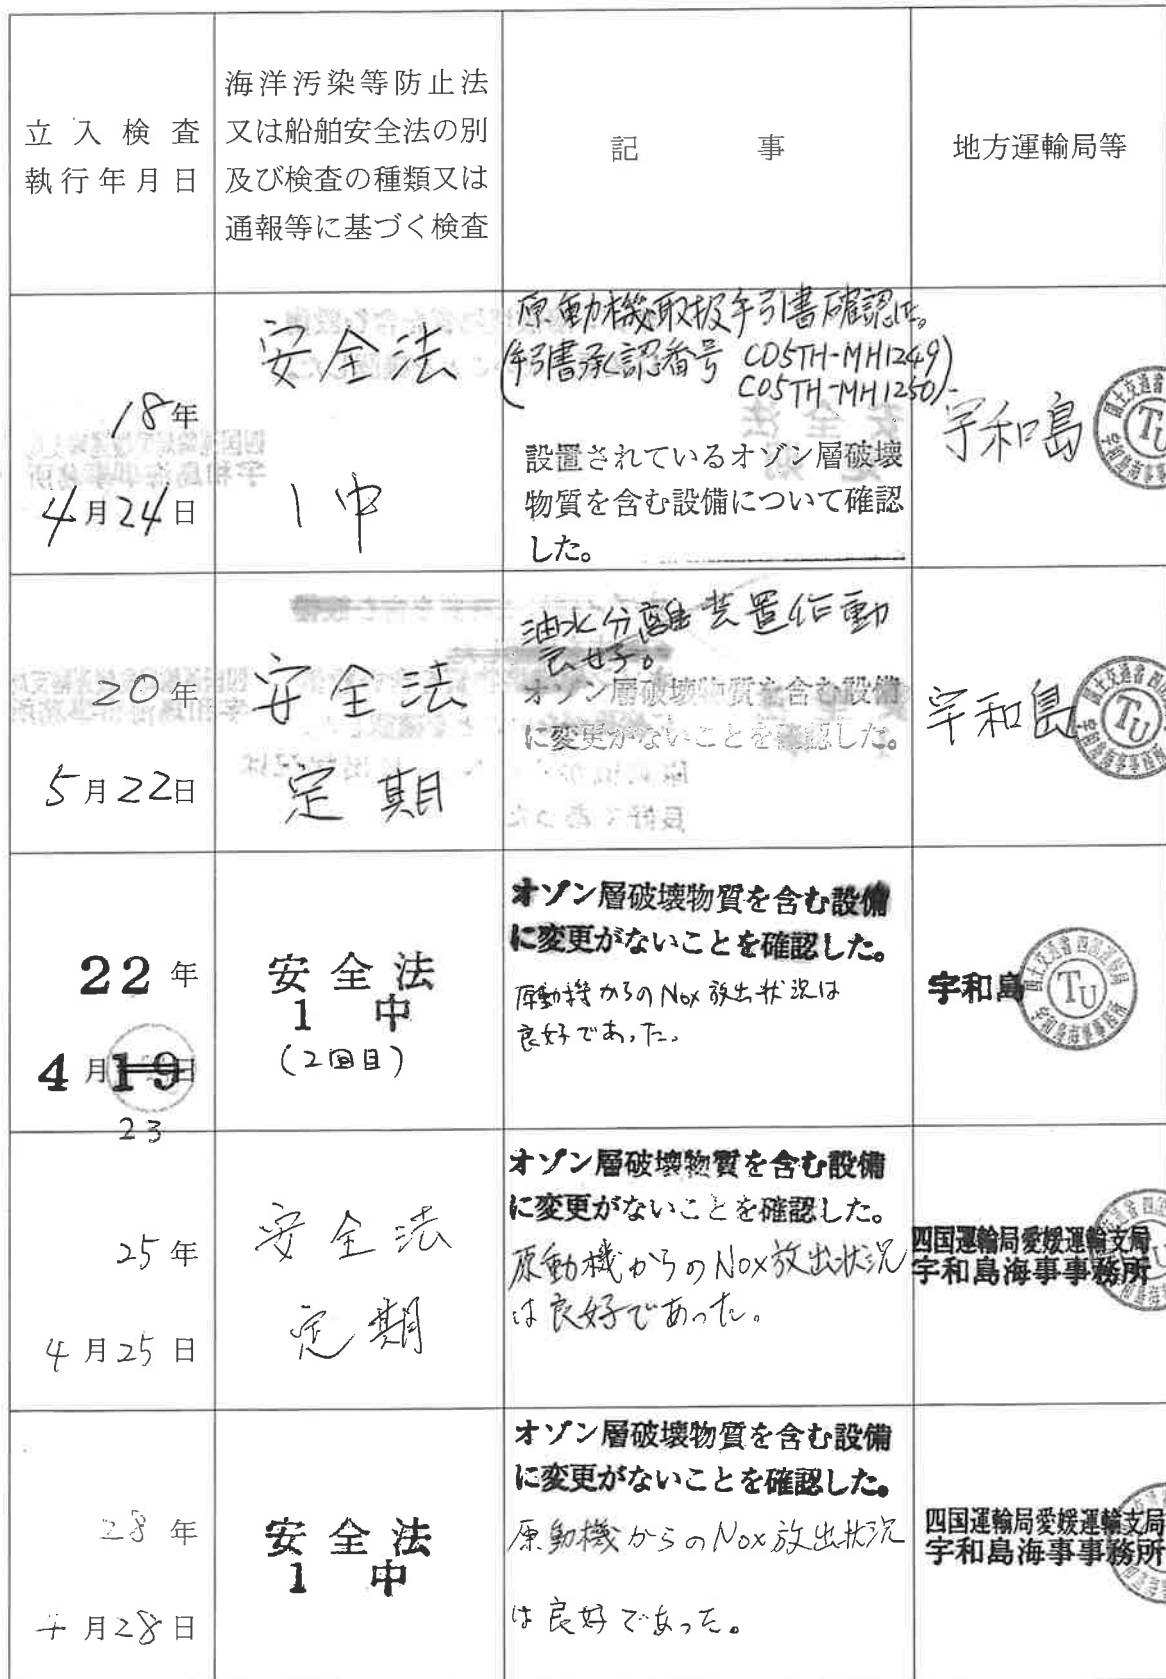 立入検査
執行年月日
海洋汚染等防止法
又は船舶安全法の別
及び検査の種類又は
通報等に基づく検査
記事
地方運輸局等
18年
4月24日
安全法
1中
原動機取扱手引書確認
(手引書承認番号 C05TH-MH1249)
C05TH-MH1250)
設置されているオゾン層破壊
物質を含む設備について確認
した。
宇和島
20年
5月22日
安全法
定期
油水分離装置作動
良好。
オゾン層破壊物質を含む設備
に変更がないことを確認した。
宇和島
22年
4月19日
23
安全法
1中
(2回目)
オゾン層破壊物質を含む設備
に変更がないことを確認した。
原動機からのNox放出状況は
良好であった。
宇和島
25年
4月25日
安全法
定期
オゾン層破壊物質を含む設備
に変更がないことを確認した。
原動機からのNox放出状況
は良好であった。
四国運輸局愛媛運輸支局
宇和島海事事務所
28年
4月28日
安全法
1中
オゾン層破壊物質を含む設備
に変更がないことを確認した。
原動機からのNox放出状況
は良好であった。
四国運輸局愛媛運輸支局
宇和島海事事務所